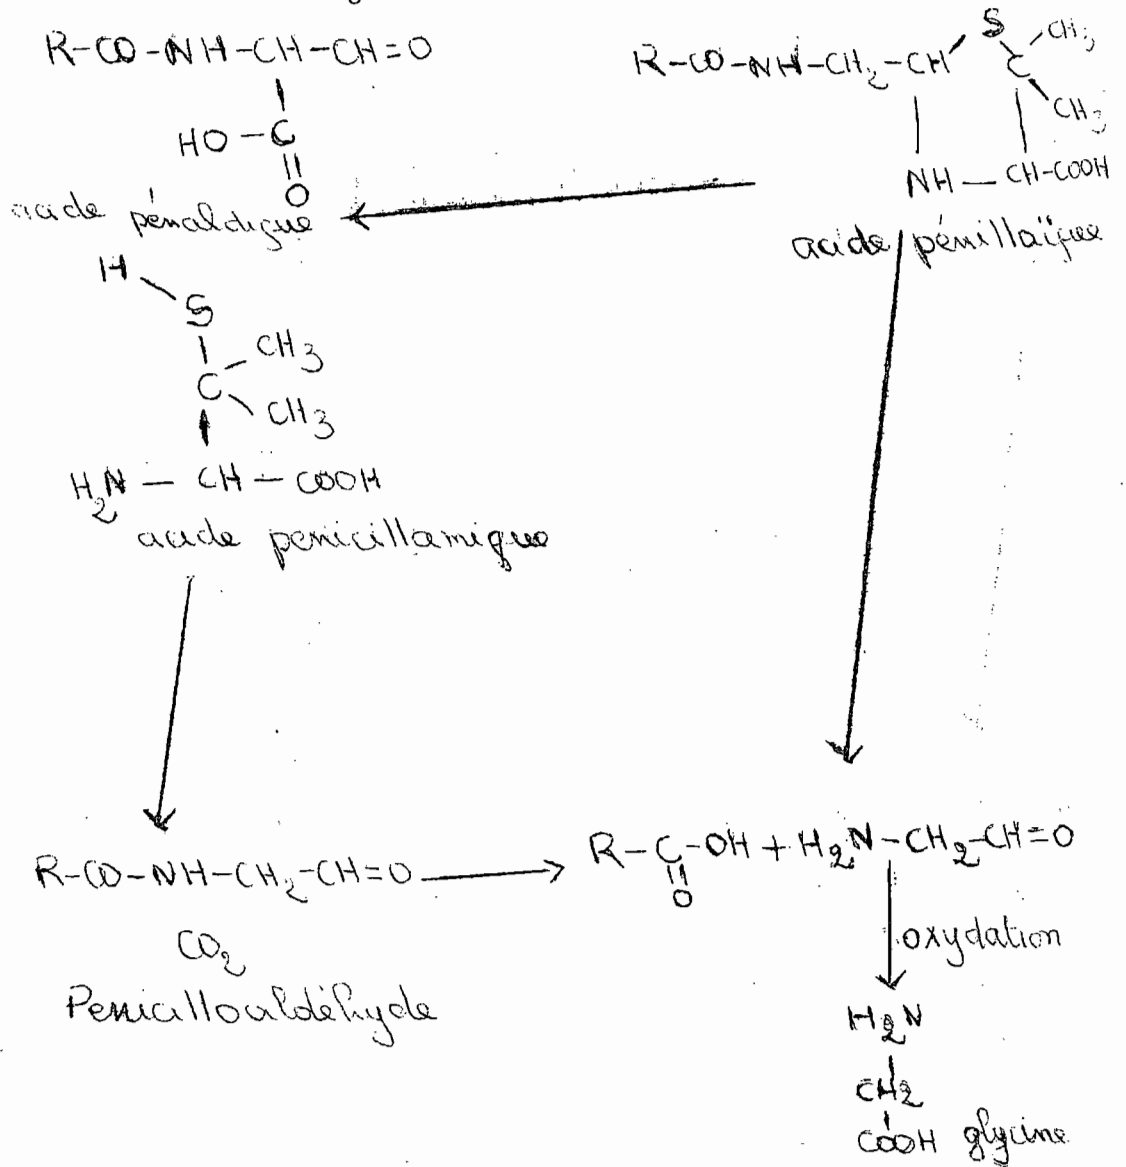 R-CO-NH-CH-CH=O
HO-C
O
acide pénaldique
R-CO-NH-CH2-CH
S
C
CH3
CH3
NH-CH-COOH
acide pénillaïque
H
S
C
CH3
CH3
H2N-CH-COOH
acide penicillamique
R-CO-NH-CH2-CH=O
CO2
Penicilloaldéhyde
R-C-OH+H2N-CH2-CH=O
O
oxydation
H2N
CH2
COOH glycine